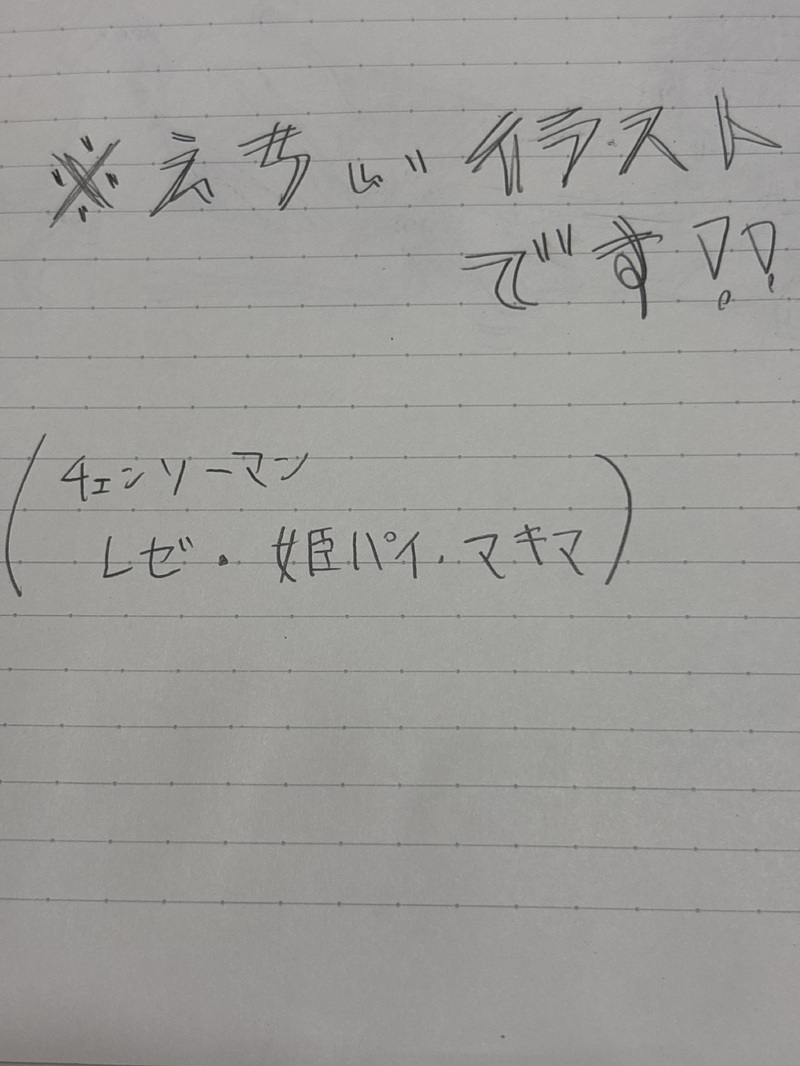 ※えちぃイラスト
です!!
(チェンソーマン
レゼ・姫パイ・マキマ)